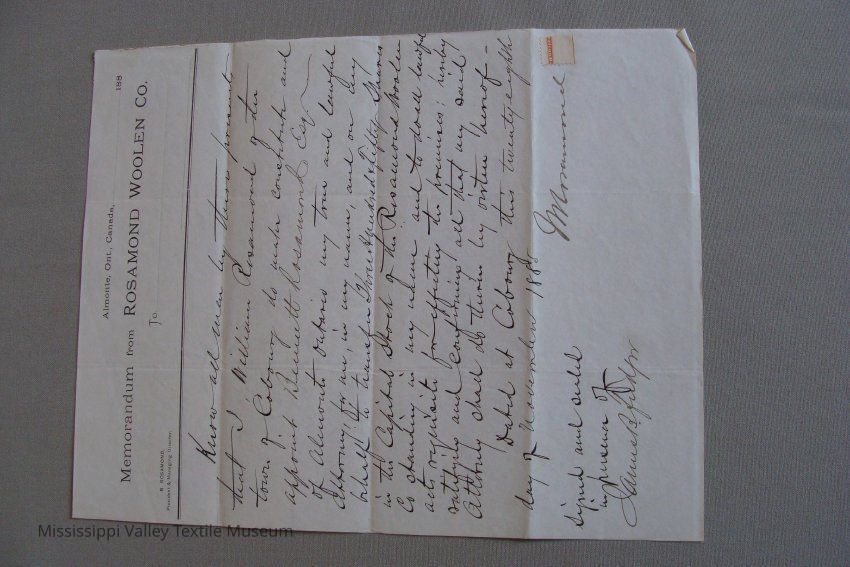 188
Almonte, Ont., Canada,
Memorandum from ROSAMOND WOOLEN CO.
B. ROSAMOND,
President & Managing Director.
To
Know all men by these present
that I William Rosamond of the
town of Cobourg do make constitute and
appoint Bennett Rosamond Esq
of Almonte Ontario my true and lawful
Attorney, for me, in my name, and on my
behalf to transfer Three Hundred & Fifty Shares
in the Capital Stock of the Rosamond Woolen
Co standing in my name and to do all lawful
acts requisite for effecting the premises; hereby
ratifying and confirming all that my said
Attorney shall do therein by virtue hereof -
Dated at Cobourg this twenty eighth
day of 1888
Signed and sealed
in presence of
Wm Rosamond
Mississippi Valley Textile Museum